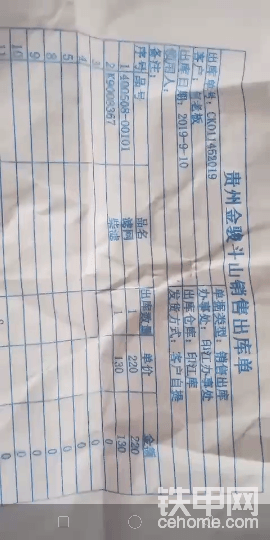 贵州金骏斗山销售出库单
出库单号: CK011452019 单据类型: 销售出库
客户: 老板 办事处: 印江办事处
出库日期: 2019-9-10 出库仓库: 印江库
领用人: 发货方式: 客户自提
备注:
序号 品号 品名 出库数量 单价 金额
1 400508-00101 滤网 1 220 220
2 K9008367 柴滤 1 130 130
3 0
4 0
5 0
6 0
7 0
8 0
9 0
10 0
11
铁甲网
cehome.com